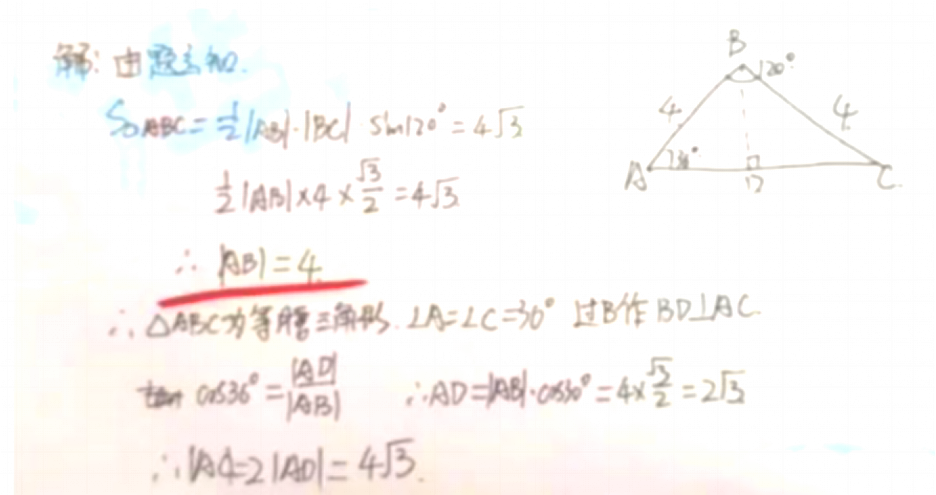 解: 由题意知.
S△ABC = 1/2|AB|·|BC| sin120° = 4√3
1/2|AB|×4×√3/2 = 4√3
∴ |AB| = 4.
∴ △ABC为等腰三角形. ∠A=∠C=30° 过B作BD⊥AC.
cos30° = |AD|/|AB| ∴AD=|AB|·cos30° = 4×√3/2 = 2√3
∴ |AC|=2|AD|= 4√3.
B
120°
4
4
A
30°
D
C